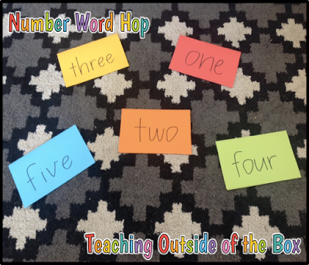 Number Word Hop
three
one
two
five
four
Teaching Outside of the Box